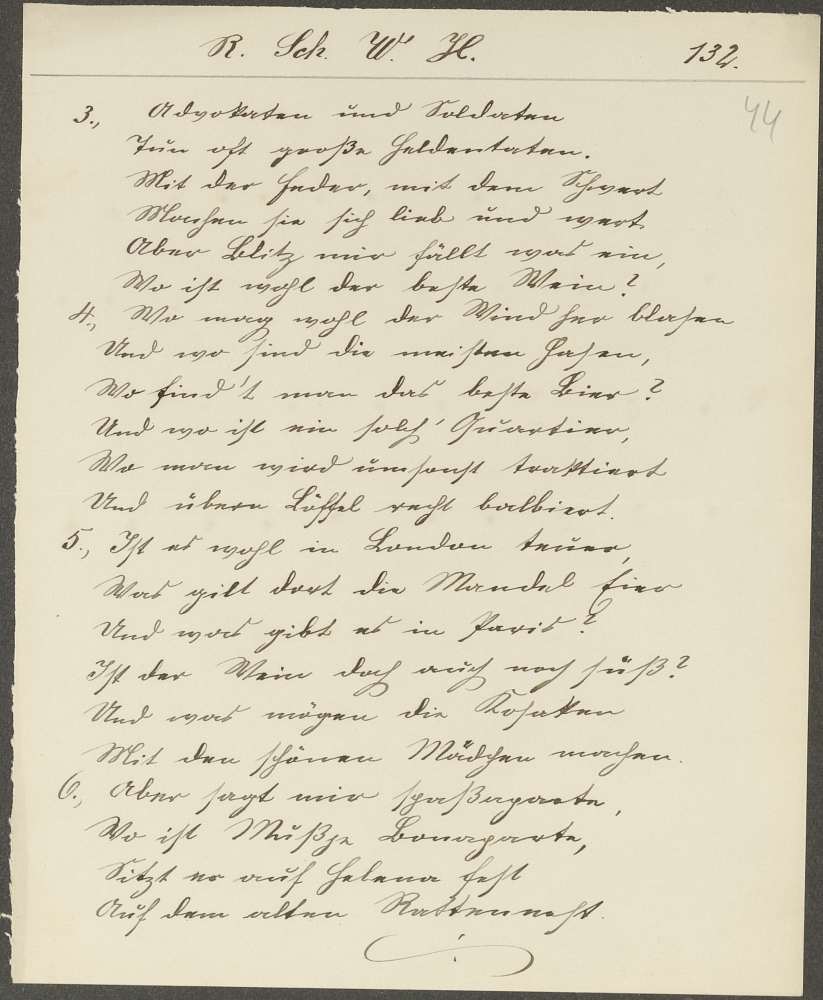 R. Sch. W. H. 132.
44
3., Advokaten und Soldaten
Tun oft große Heldentaten.
Mit der Feder, mit dem Schwert
Machen sie sich lieb und wert
Aber Blitz mir fällt was ein,
Wo ist wohl der beste Wein?
4., Wo mag wohl der Wind her blasen
Und wo sind die meisten Hasen,
Wo find't man das beste Bier?
Und wo ist ein solch' Quartier,
Wo man wird umsonst traktiert
Und übern Löffel recht balbiert.
5., Ist es wohl in London teuer,
Was gilt dort die Mandel Eier
Und was gibt es in Paris?
Ist der Wein doch auch noch süß?
Und was mögen die Kosakken
Mit den schönen Mädchen machen.
6., Aber sagt mir spaßaparte,
Wo ist Mußje Bonaparte,
Sitzt er auf Helena fest
Auf dem alten Rattennest.